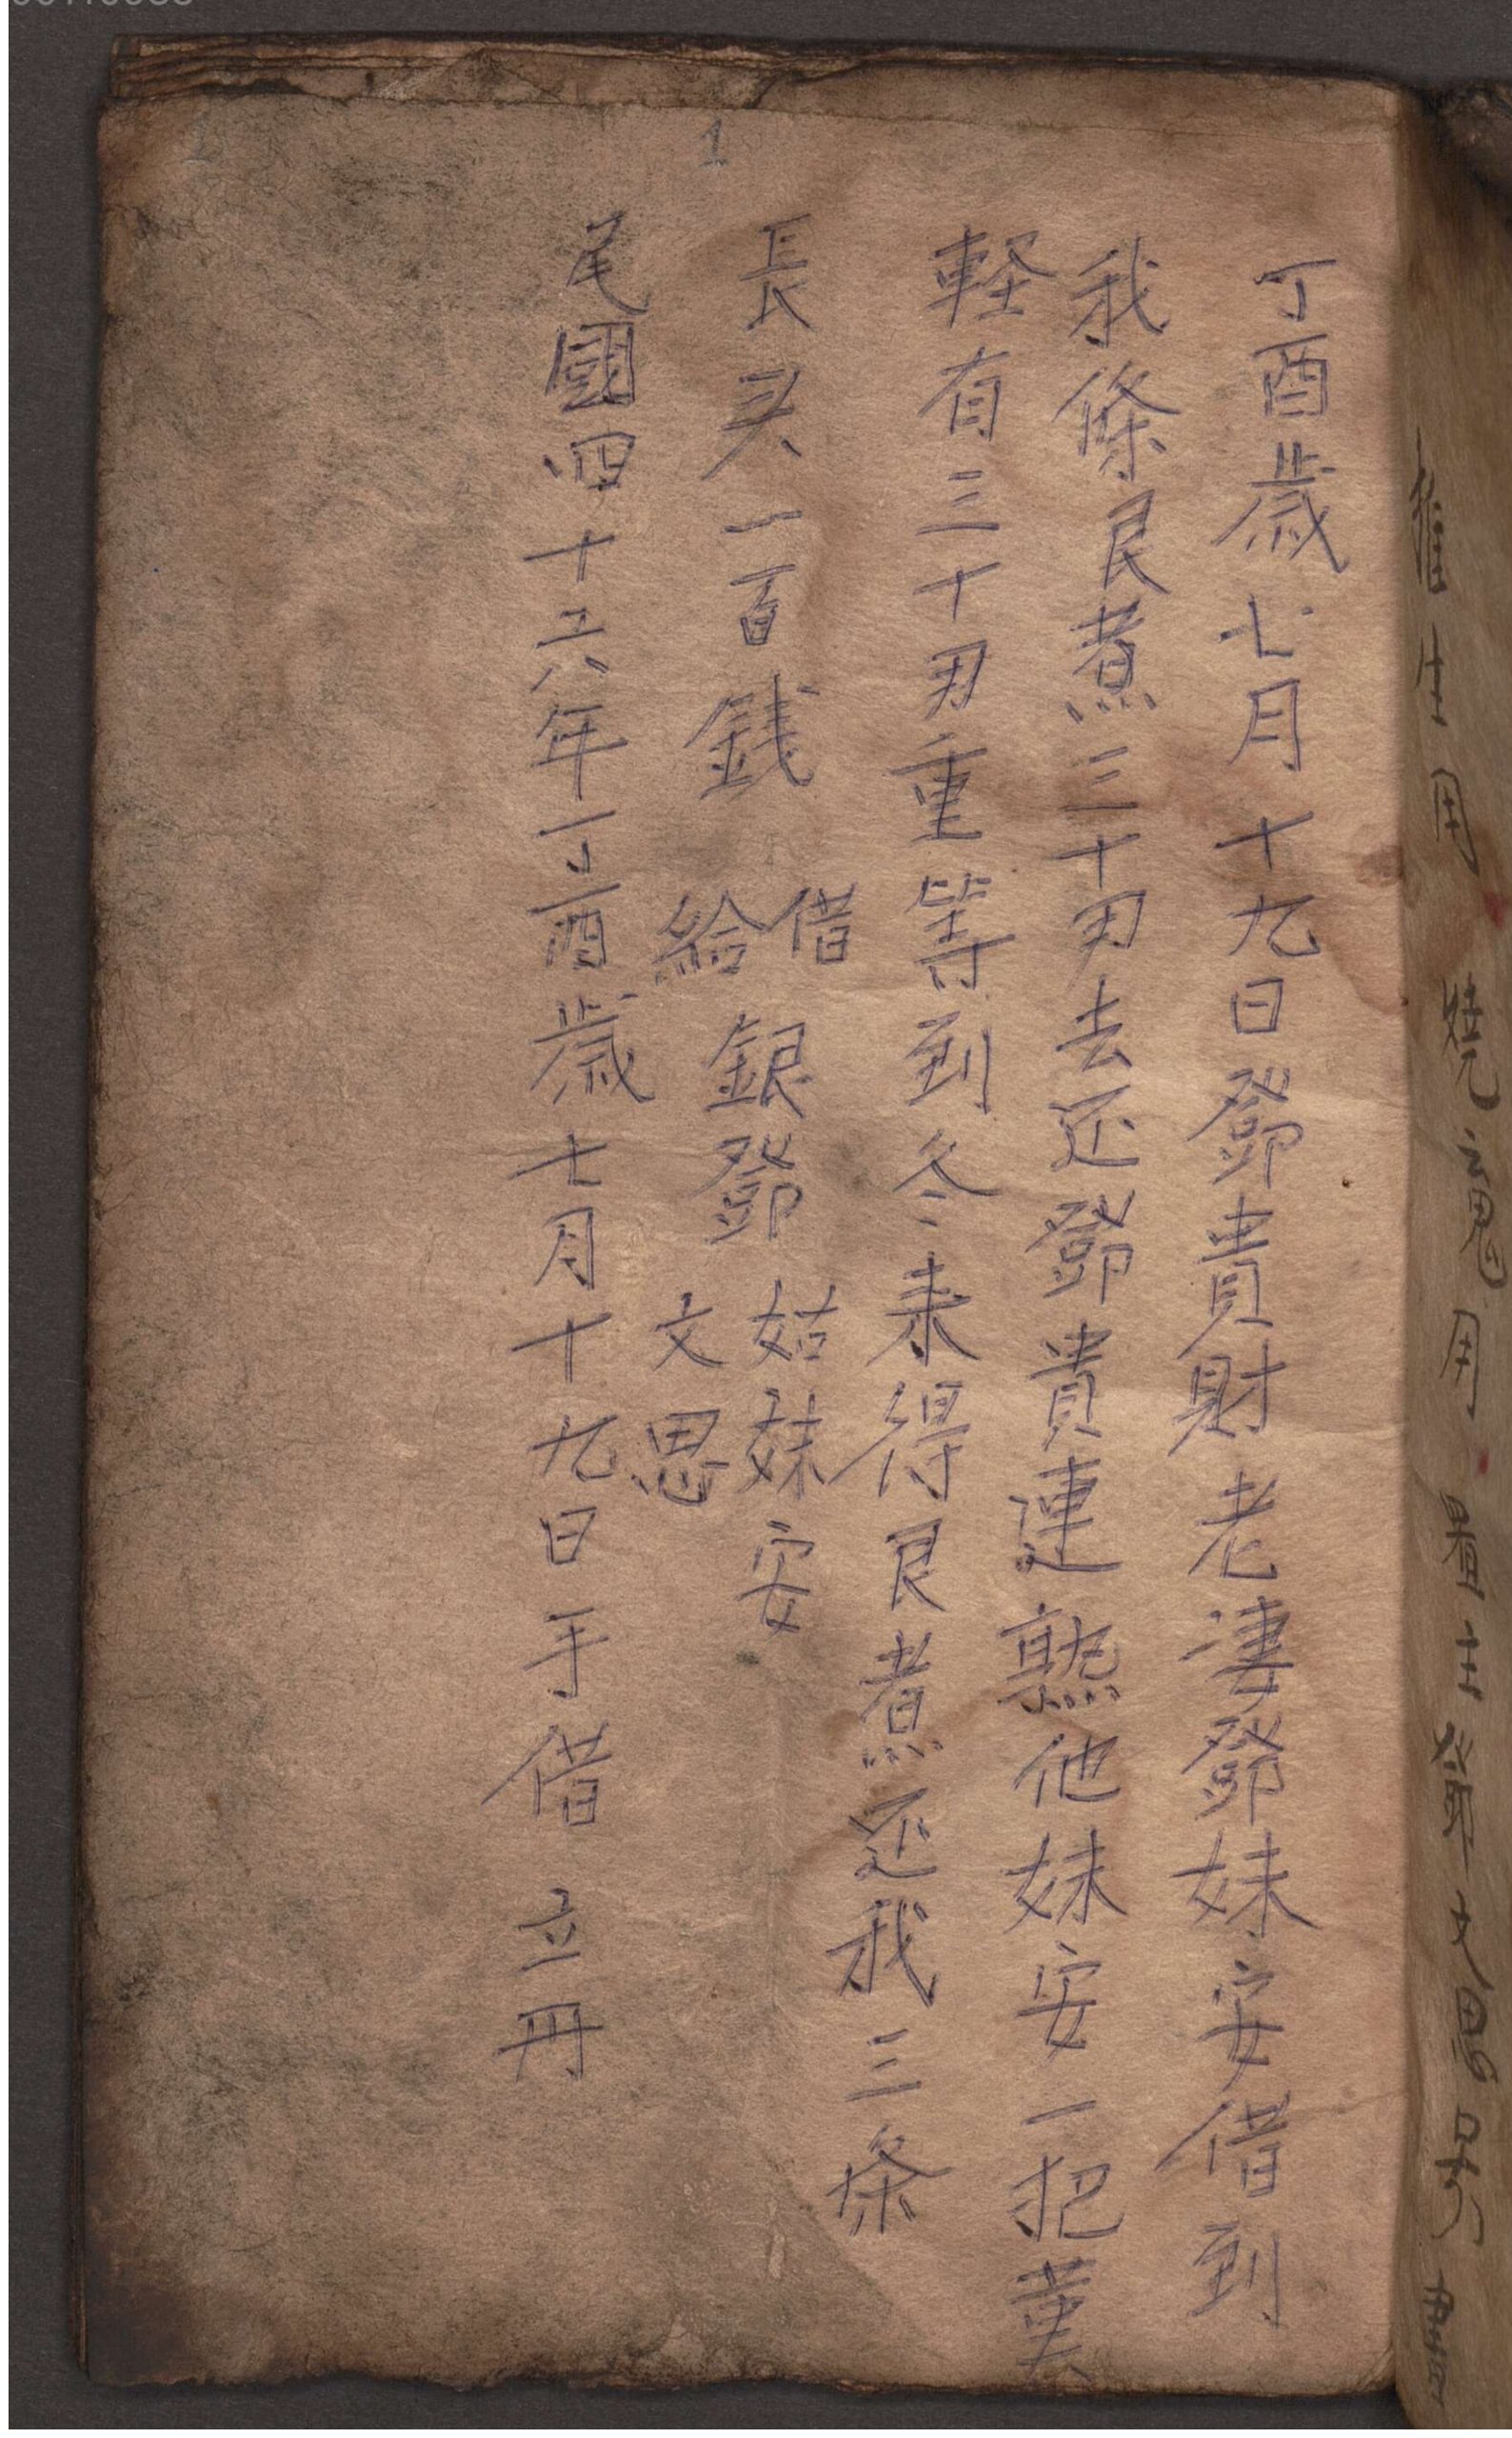 丁酉歳七月十九日鄧貴財老凄鄧妹安借到
我條艮煮三十刃去还鄧貴連熟他妹安一把葉
軽有三十刃重等到冬来得艮煮还我三条
長头一百銭
借
給
銀鄧
姑妹安
文思
尾國四十六年丁酉歳七月十九日手借 立冊
催生用 燒 魂用 置主鄧文思另書
1